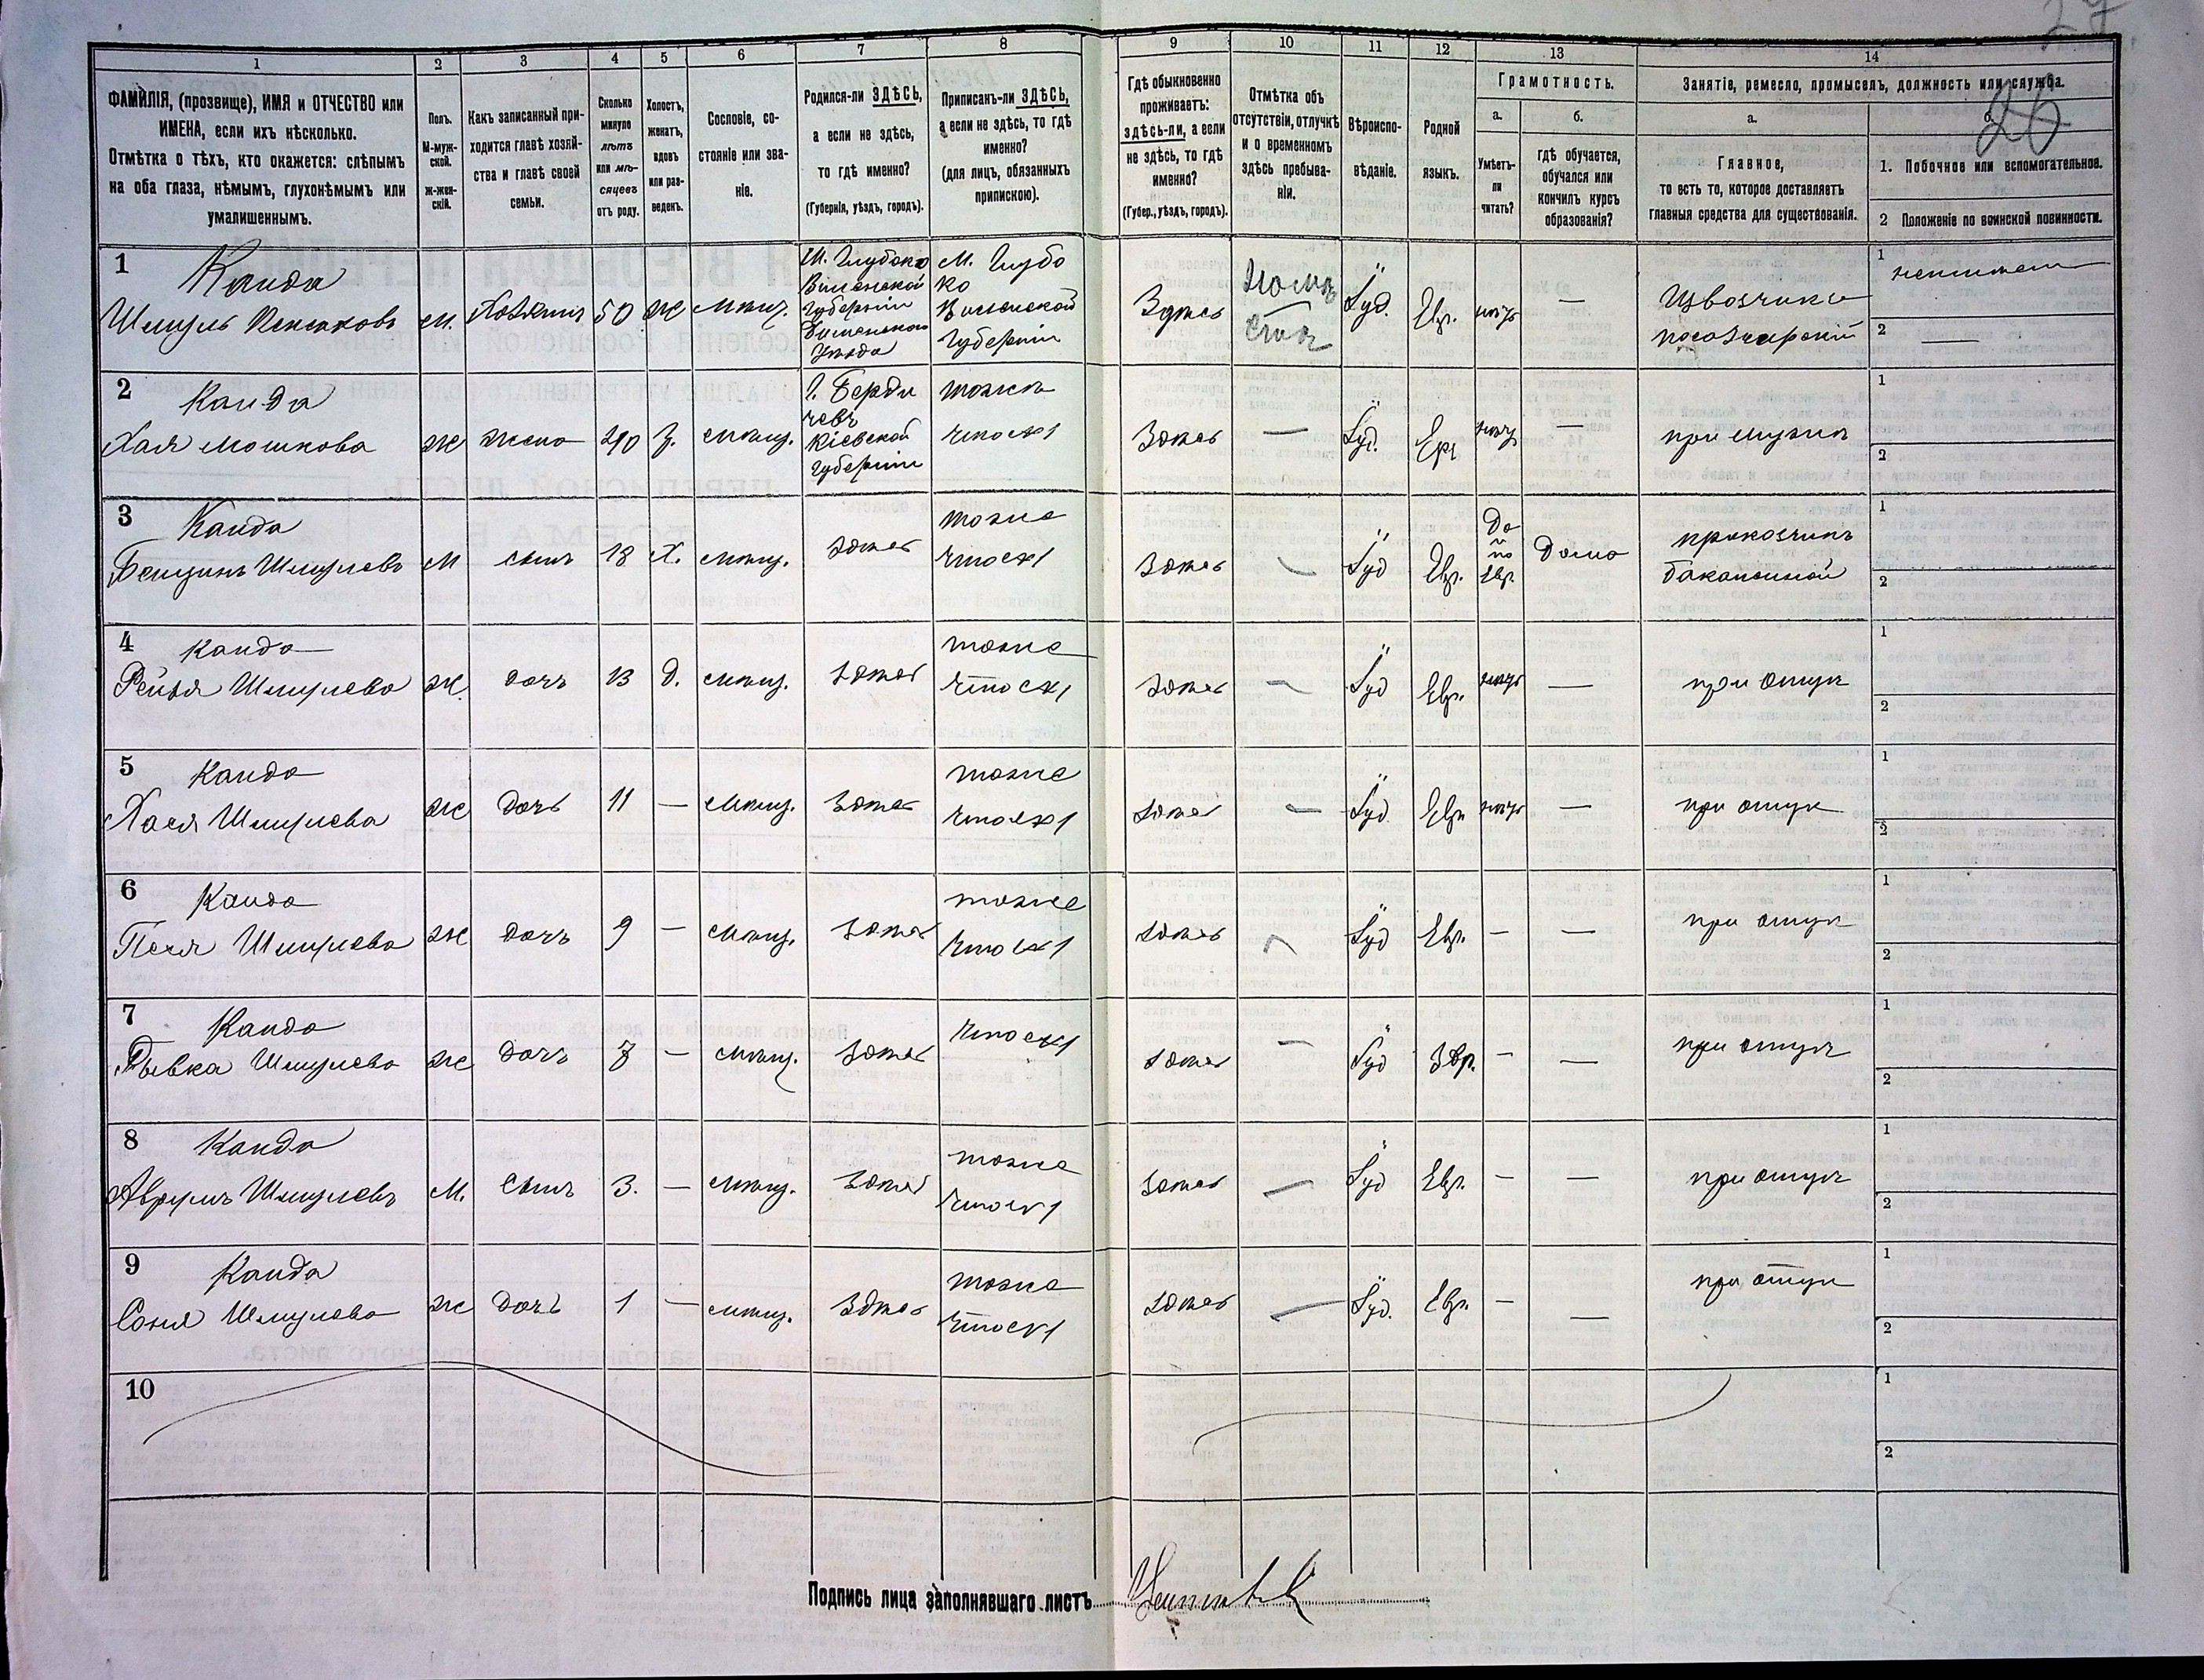 27
26
1 2 3 4 5 6 7 8 9 10 11 12 13 14
ФАМИЛІЯ, (прозвище), ИМЯ и ОТЧЕСТВО или
ИМЕНА, если ихъ нѣсколько.
Отмѣтка о тѣхъ, кто окажется: слѣпымъ
на оба глаза, нѣмымъ, глухонѣмымъ или
умалишеннымъ.
Полъ.
М-муж-
ской.
ж-жен-
скій.
Какъ записанный при-
ходится главѣ хозяй-
ства и главѣ своей
семьи.
Сколько
минуло
лѣтъ
или мѣ-
сяцевъ
отъ роду.
Холостъ,
женатъ,
вдовъ
или раз-
веденъ.
Сословіе, со-
стояніе или зва-
ніе.
Родился-ли ЗДѢСЬ,
а если не здѣсь,
то гдѣ именно?
(Губернія, уѣздъ, городъ).
Приписанъ-ли ЗДѢСЬ,
а если не здѣсь, то гдѣ
именно?
(для лицъ, обязанныхъ
припискою).
Гдѣ обыкновенно
проживаетъ:
здѣсь-ли, а если
не здѣсь, то гдѣ
именно?
(Губер., уѣздъ, городъ).
Отмѣтка объ
отсутствіи, отлучкѣ
и о временномъ
здѣсь пребыва-
ніи.
Вѣроиспо-
вѣданіе.
Родной
языкъ.
Грамотность.
а.
Умѣетъ-
ли
читать?
б.
гдѣ обучается,
обучался или
кончилъ курсъ
образованія?
Занятіе, ремесло, промыселъ, должность или служба.
а.
Главное,
то есть то, которое доставляетъ
главныя средства для существованія.
б.
1. Побочное или вспомогательное.
2 Положеніе по воинской повинности.
1 Канда
Шмуль М. Хозяинъ 50 Ж мѣщ.
М. Глубоко
Виленской
Губерніи
Уѣзда
М. Глубо
ко
Виленской
Губерніи
Здѣсь Іуд. Евр. нѣтъ —
Извозчикъ
1
2 —
2 Канда
Хая Мошкова Ж жена 40 З. мѣщ.
г. Берди
чевъ
Кіевской
Губерніи
тоже
что и 1
Здѣсь — Іуд. Евр нѣтъ — при мужѣ
1
2
3 Канда
М сынъ 18 Х. мѣщ. Здѣсь
тоже
что и 1
Здѣсь — Іуд Евр.
Да
по
Евр.
Дома
1
2
4 Канда
Шмулева Ж. дочь 13 Д. мѣщ. Здѣсь
тоже
что и 1
Здѣсь — Іуд Евр. нѣтъ — при отцѣ
1
2
5 Канда
Хася Шмулева Ж дочь 11 — мѣщ. Здѣсь
тоже
что и 1
Здѣсь — Іуд Евр нѣтъ — при отцѣ
1
2
6 Канда
Песя Шмулева Ж дочь 9 — мѣщ. Здѣсь
тоже
что и 1
Здѣсь — Іуд Евр. — — при отцѣ
1
2
7 Канда
Рывка Шмулева Ж дочь 7 — мѣщ. Здѣсь
что и 1
Здѣсь — Іуд Евр. — — при отцѣ
1
2
8 Канда
Аврумъ Шмулевъ М. сынъ 3. — мѣщ. Здѣсь
тоже
что и 1
Здѣсь — Іуд Евр. — — при отцѣ
1
2
9 Канда
Соня Шмулева Ж дочь 1 — мѣщ. Здѣсь
тоже
что и 1
Здѣсь — Іуд. Евр. — — при отцѣ
1
2
10
1
2
Подпись лица заполнявшаго листъ